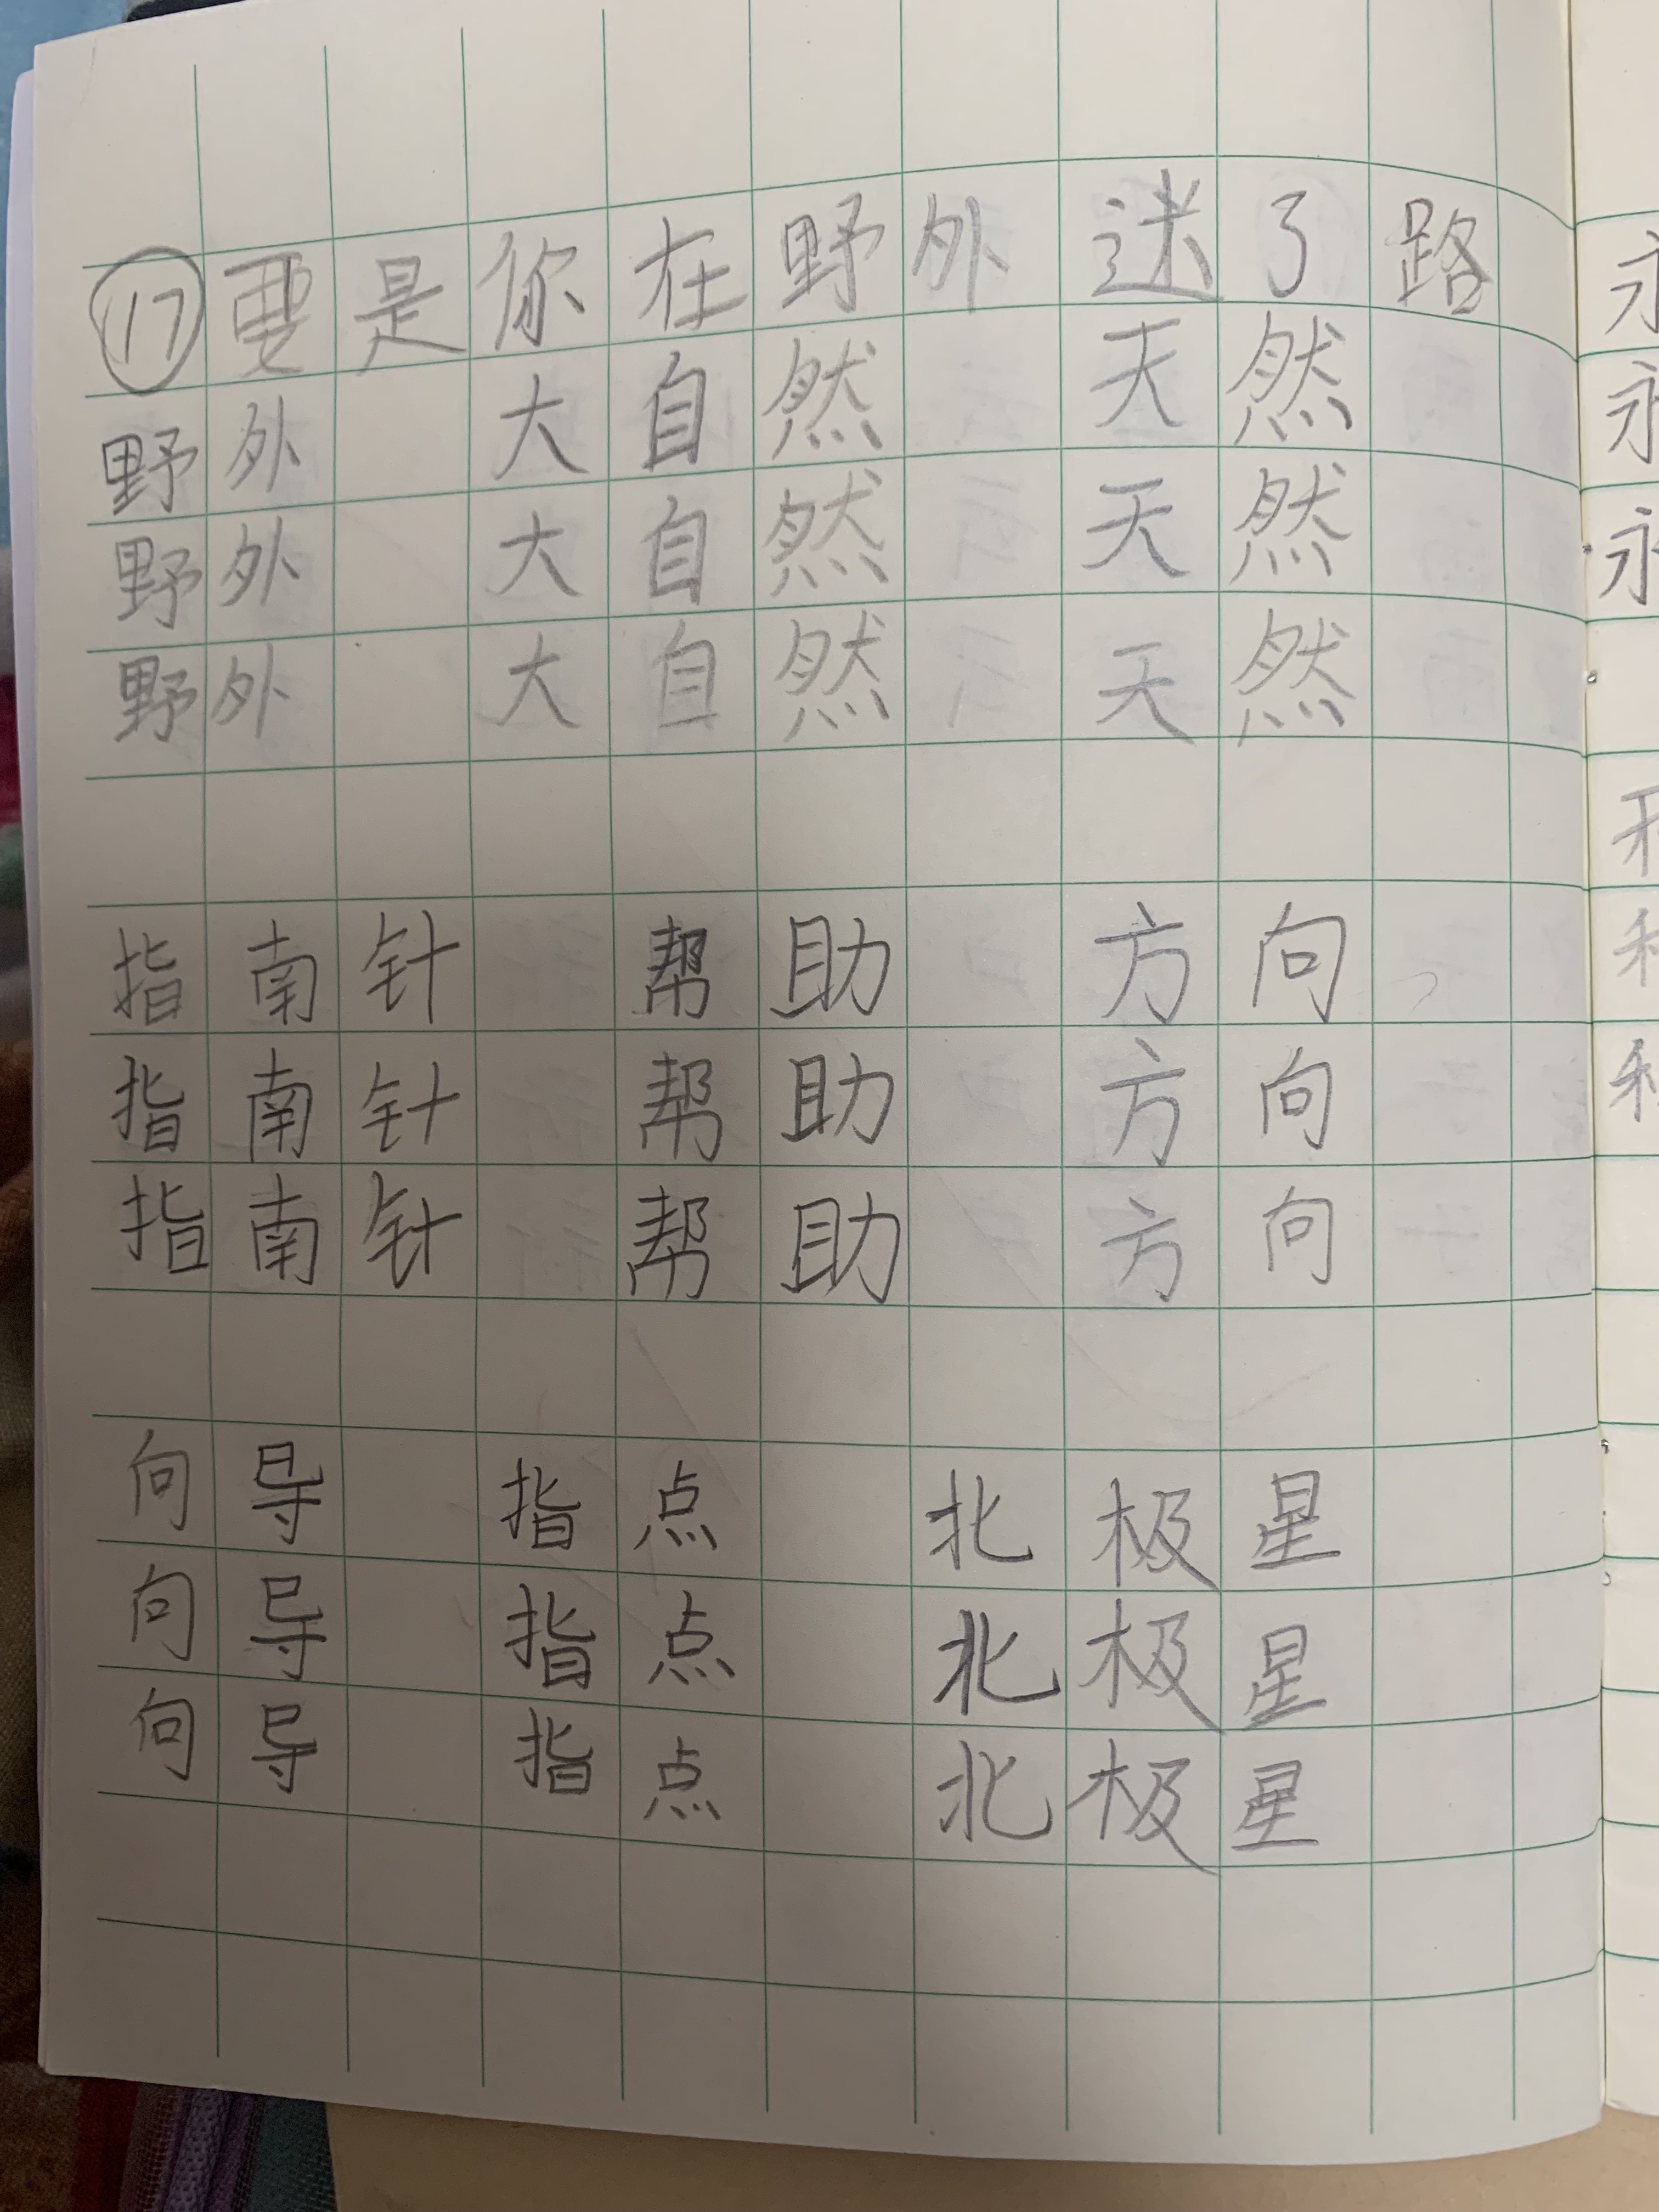 ⑰要是你在野外迷了路
野外 大自然 天然
野外 大自然 天然
野外 大自然 天然
指南针 帮助 方向
指南针 帮助 方向
指南针 帮助 方向
向导 指点 北极星
向导 指点 北极星
向导 指点 北极星
永
永
永